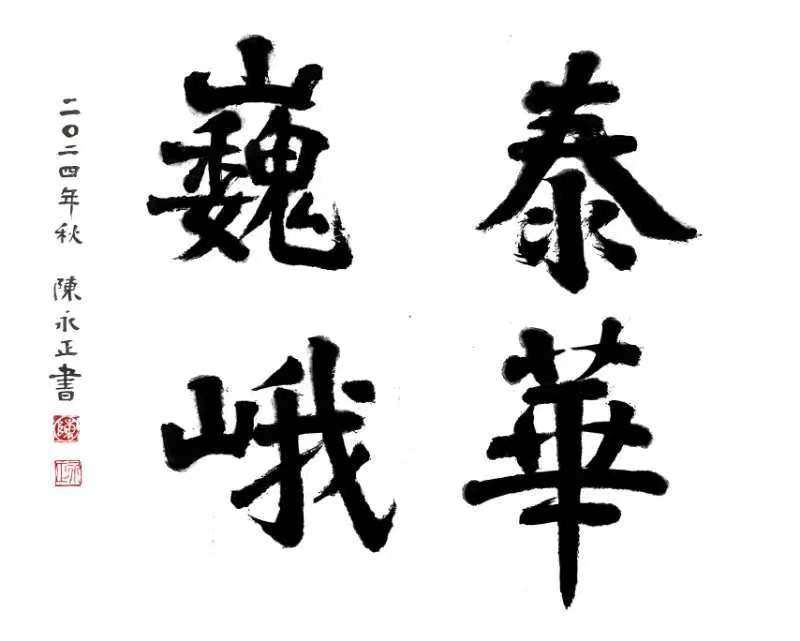 泰華
巍峨
二〇二四年秋 陳永正書
陳
永正